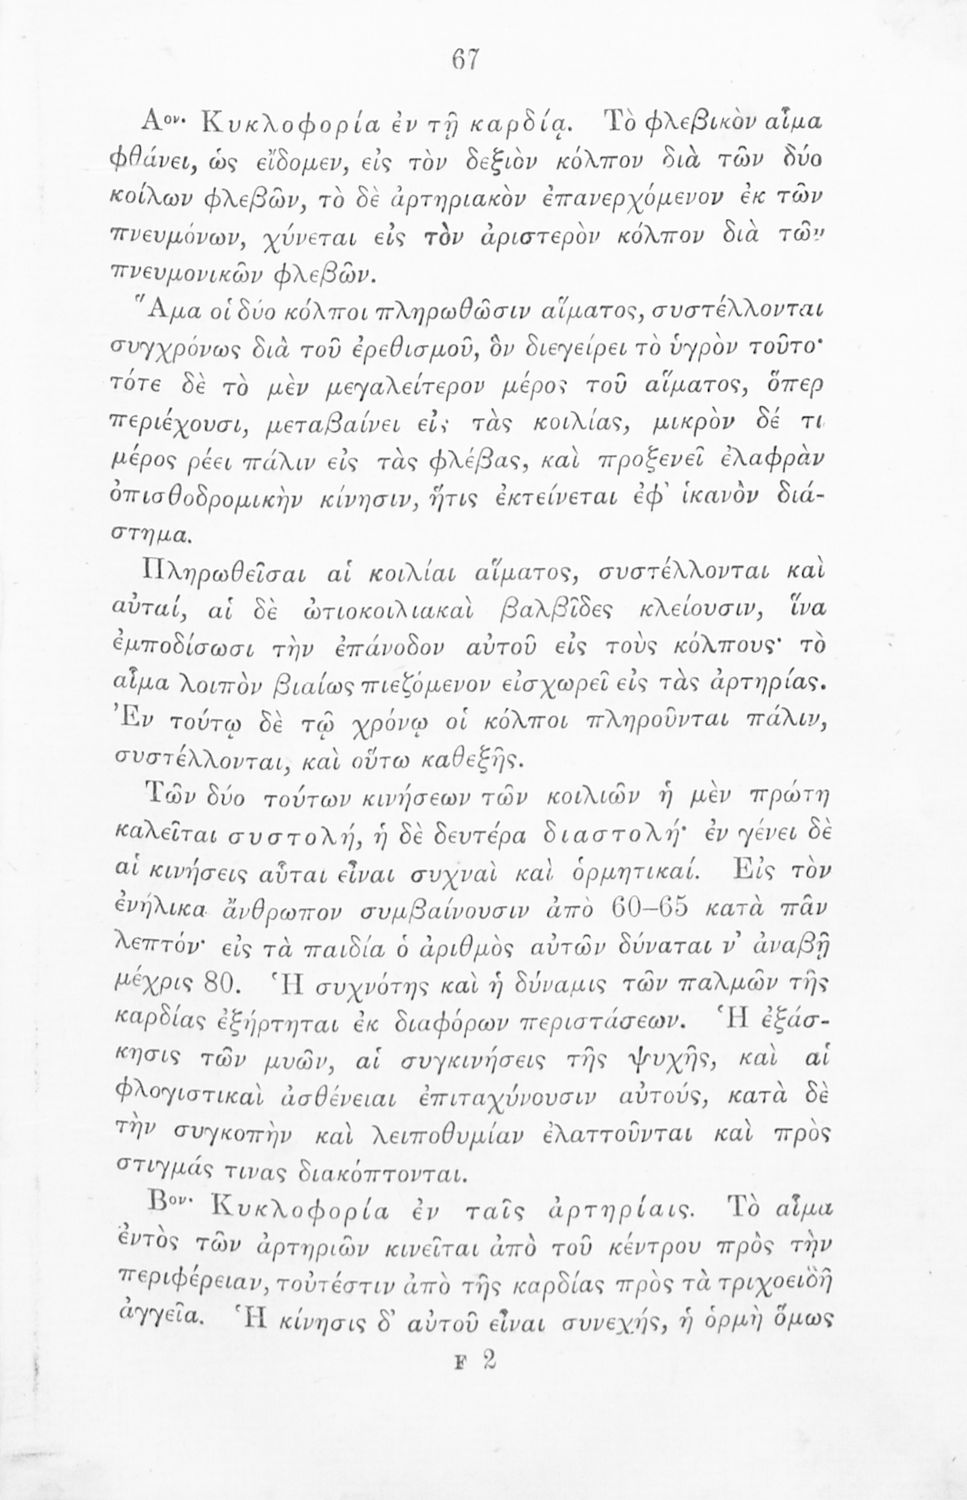 67
Αον· Κυκλοφορία ἐν τῇ καρδίᾳ. Τὸ φλεβικὸν αἷμα
φθάνει, ὡς εἴδομεν, εἰς τὸν δεξιὸν κόλπον διὰ τῶν δύο
κοίλων φλεβῶν, τὸ δὲ ἀρτηριακὸν ἐπανερχόμενον ἐκ τῶν
πνευμόνων, χύνεται εἰς τὸν ἀριστερὸν κόλπον διὰ τῶν
πνευμονικῶν φλεβῶν.
Ἅμα οἱ δύο κόλποι πληρωθῶσιν αἵματος, συστέλλονται
συγχρόνως διὰ τοῦ ἐρεθισμοῦ, ὃν διεγείρει τὸ ὑγρὸν τοῦτο·
τότε δὲ τὸ μὲν μεγαλείτερον μέρος τοῦ αἵματος, ὅπερ
περιέχουσι, μεταβαίνει εἰς τὰς κοιλίας, μικρὸν δέ τι
μέρος ῥέει πάλιν εἰς τὰς φλέβας, καὶ προξενεῖ ἐλαφρὰν
ὀπισθοδρομικὴν κίνησιν, ἥτις ἐκτείνεται ἐφ' ἱκανὸν διά-
στημα.
Πληρωθεῖσαι αἱ κοιλίαι αἵματος, συστέλλονται καὶ
αὐταί, αἱ δὲ ὠτιοκοιλιακαὶ βαλβῖδες κλείουσιν, ἵνα
ἐμποδίσωσι τὴν ἐπάνοδον αὐτοῦ εἰς τοὺς κόλπους· τὸ
αἷμα λοιπὸν βιαίως πιεζόμενον εἰσχωρεῖ εἰς τὰς ἀρτηρίας.
Ἐν τούτῳ δὲ τῷ χρόνῳ οἱ κόλποι πληροῦνται πάλιν,
συστέλλονται, καὶ οὕτω καθεξῆς.
Τῶν δύο τούτων κινήσεων τῶν κοιλιῶν ἡ μὲν πρώτη
καλεῖται συστολή, ἡ δὲ δευτέρα διαστολή· ἐν γένει δὲ
αἱ κινήσεις αὗται εἶναι συχναὶ καὶ ὁρμητικαί. Εἰς τὸν
ἐνήλικα ἄνθρωπον συμβαίνουσιν ἀπὸ 60–65 κατὰ πᾶν
λεπτόν· εἰς τὰ παιδία ὁ ἀριθμὸς αὐτῶν δύναται ν' ἀναβῇ
μέχρις 80. Ἡ συχνότης καὶ ἡ δύναμις τῶν παλμῶν τῆς
καρδίας ἐξήρτηται ἐκ διαφόρων περιστάσεων. Ἡ ἐξάσ-
κησις τῶν μυῶν, αἱ συγκινήσεις τῆς ψυχῆς, καὶ αἱ
φλογιστικαὶ ἀσθένειαι ἐπιταχύνουσιν αὐτούς, κατὰ δὲ
τὴν συγκοπὴν καὶ λειποθυμίαν ἐλαττοῦνται καὶ πρὸς
στιγμάς τινας διακόπτονται.
Βον· Κυκλοφορία ἐν ταῖς ἀρτηρίαις. Τὸ αἷμα
ἐντὸς τῶν ἀρτηριῶν κινεῖται ἀπὸ τοῦ κέντρου πρὸς τὴν
περιφέρειαν, τοὐτέστιν ἀπὸ τῆς καρδίας πρὸς τὰ τριχοειδῆ
ἀγγεῖα. Ἡ κίνησις δ' αὐτοῦ εἶναι συνεχής, ἡ ὁρμὴ ὅμως
F 2